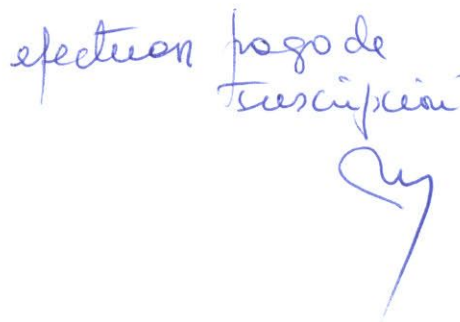 efectuar pago de
Inscripción